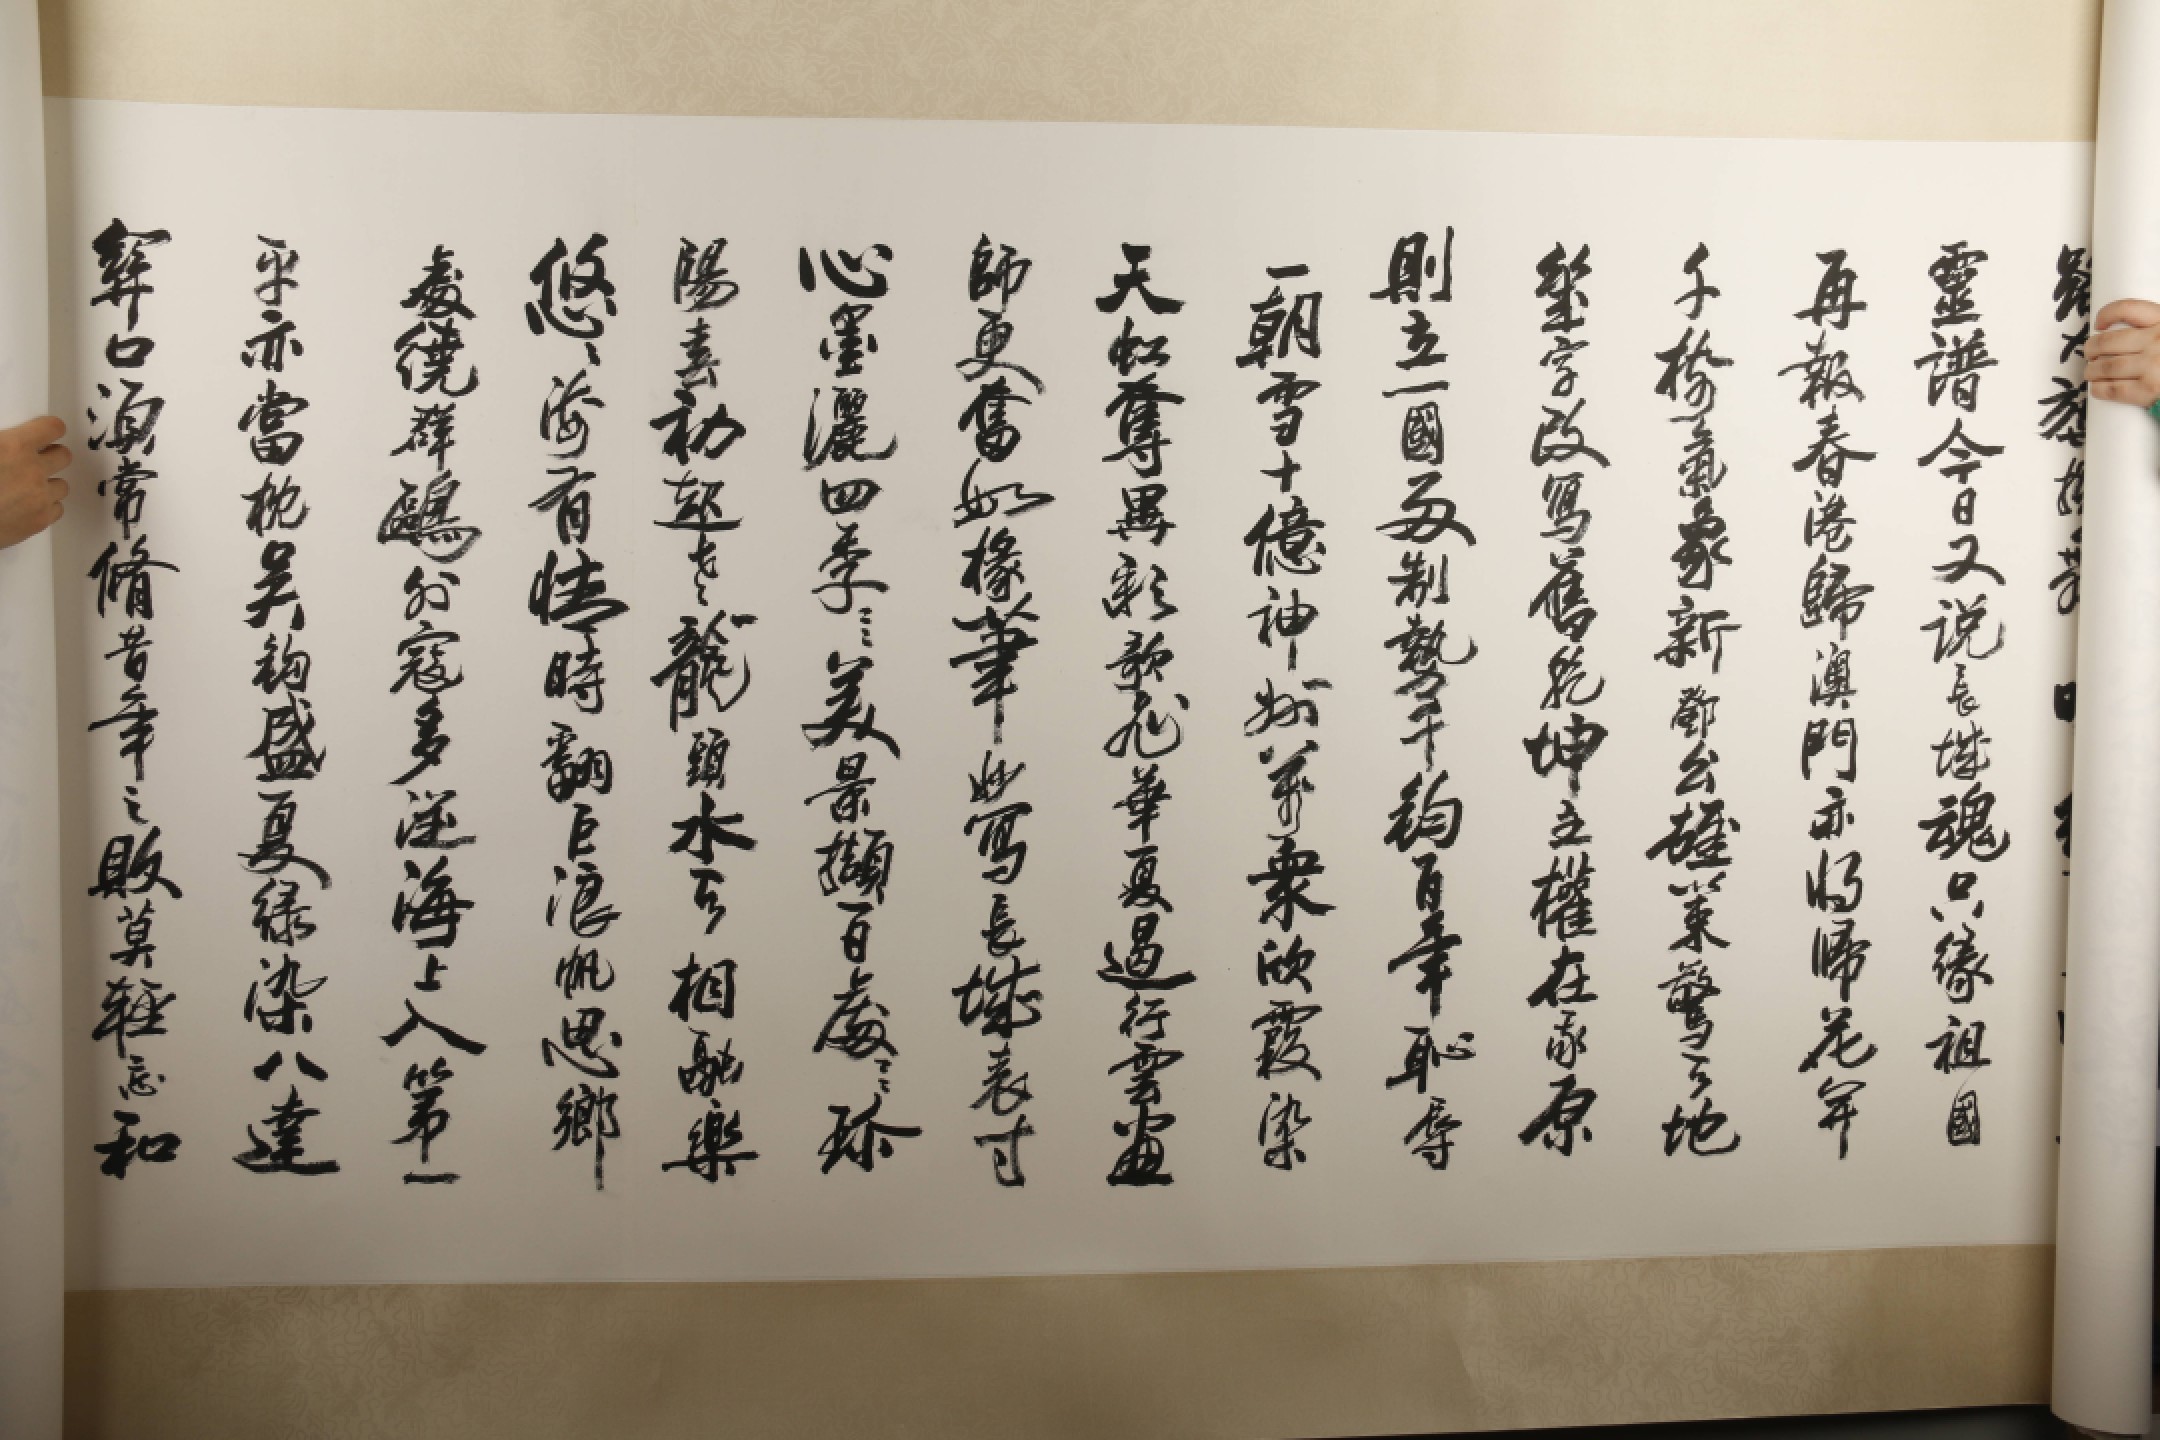 靈譜今日又说長城魂只緣祖國
再報春港歸澳門亦將歸花年
千橋氣象新鄧公雄策驚天地
幾字改寫舊乾坤主權在我原
則立一國兩制勢千鈞百年恥辱
一朝雪十億神州萬衆欣霞染
天虹奪異彩歌飛華夏遏行雲畫
師更奮如椽筆妙寫長城表寸
心墨灑四季三美景擷百處三珍
陽春初起老龍頭水天相融樂
悠悠海有情時翻巨浪帆思鄉
處繞群鷗外寇多從海上入第一
平亦當枕吴鉤盛夏緑染八達
嶺口須常脩昔年之敗莫輕忘和